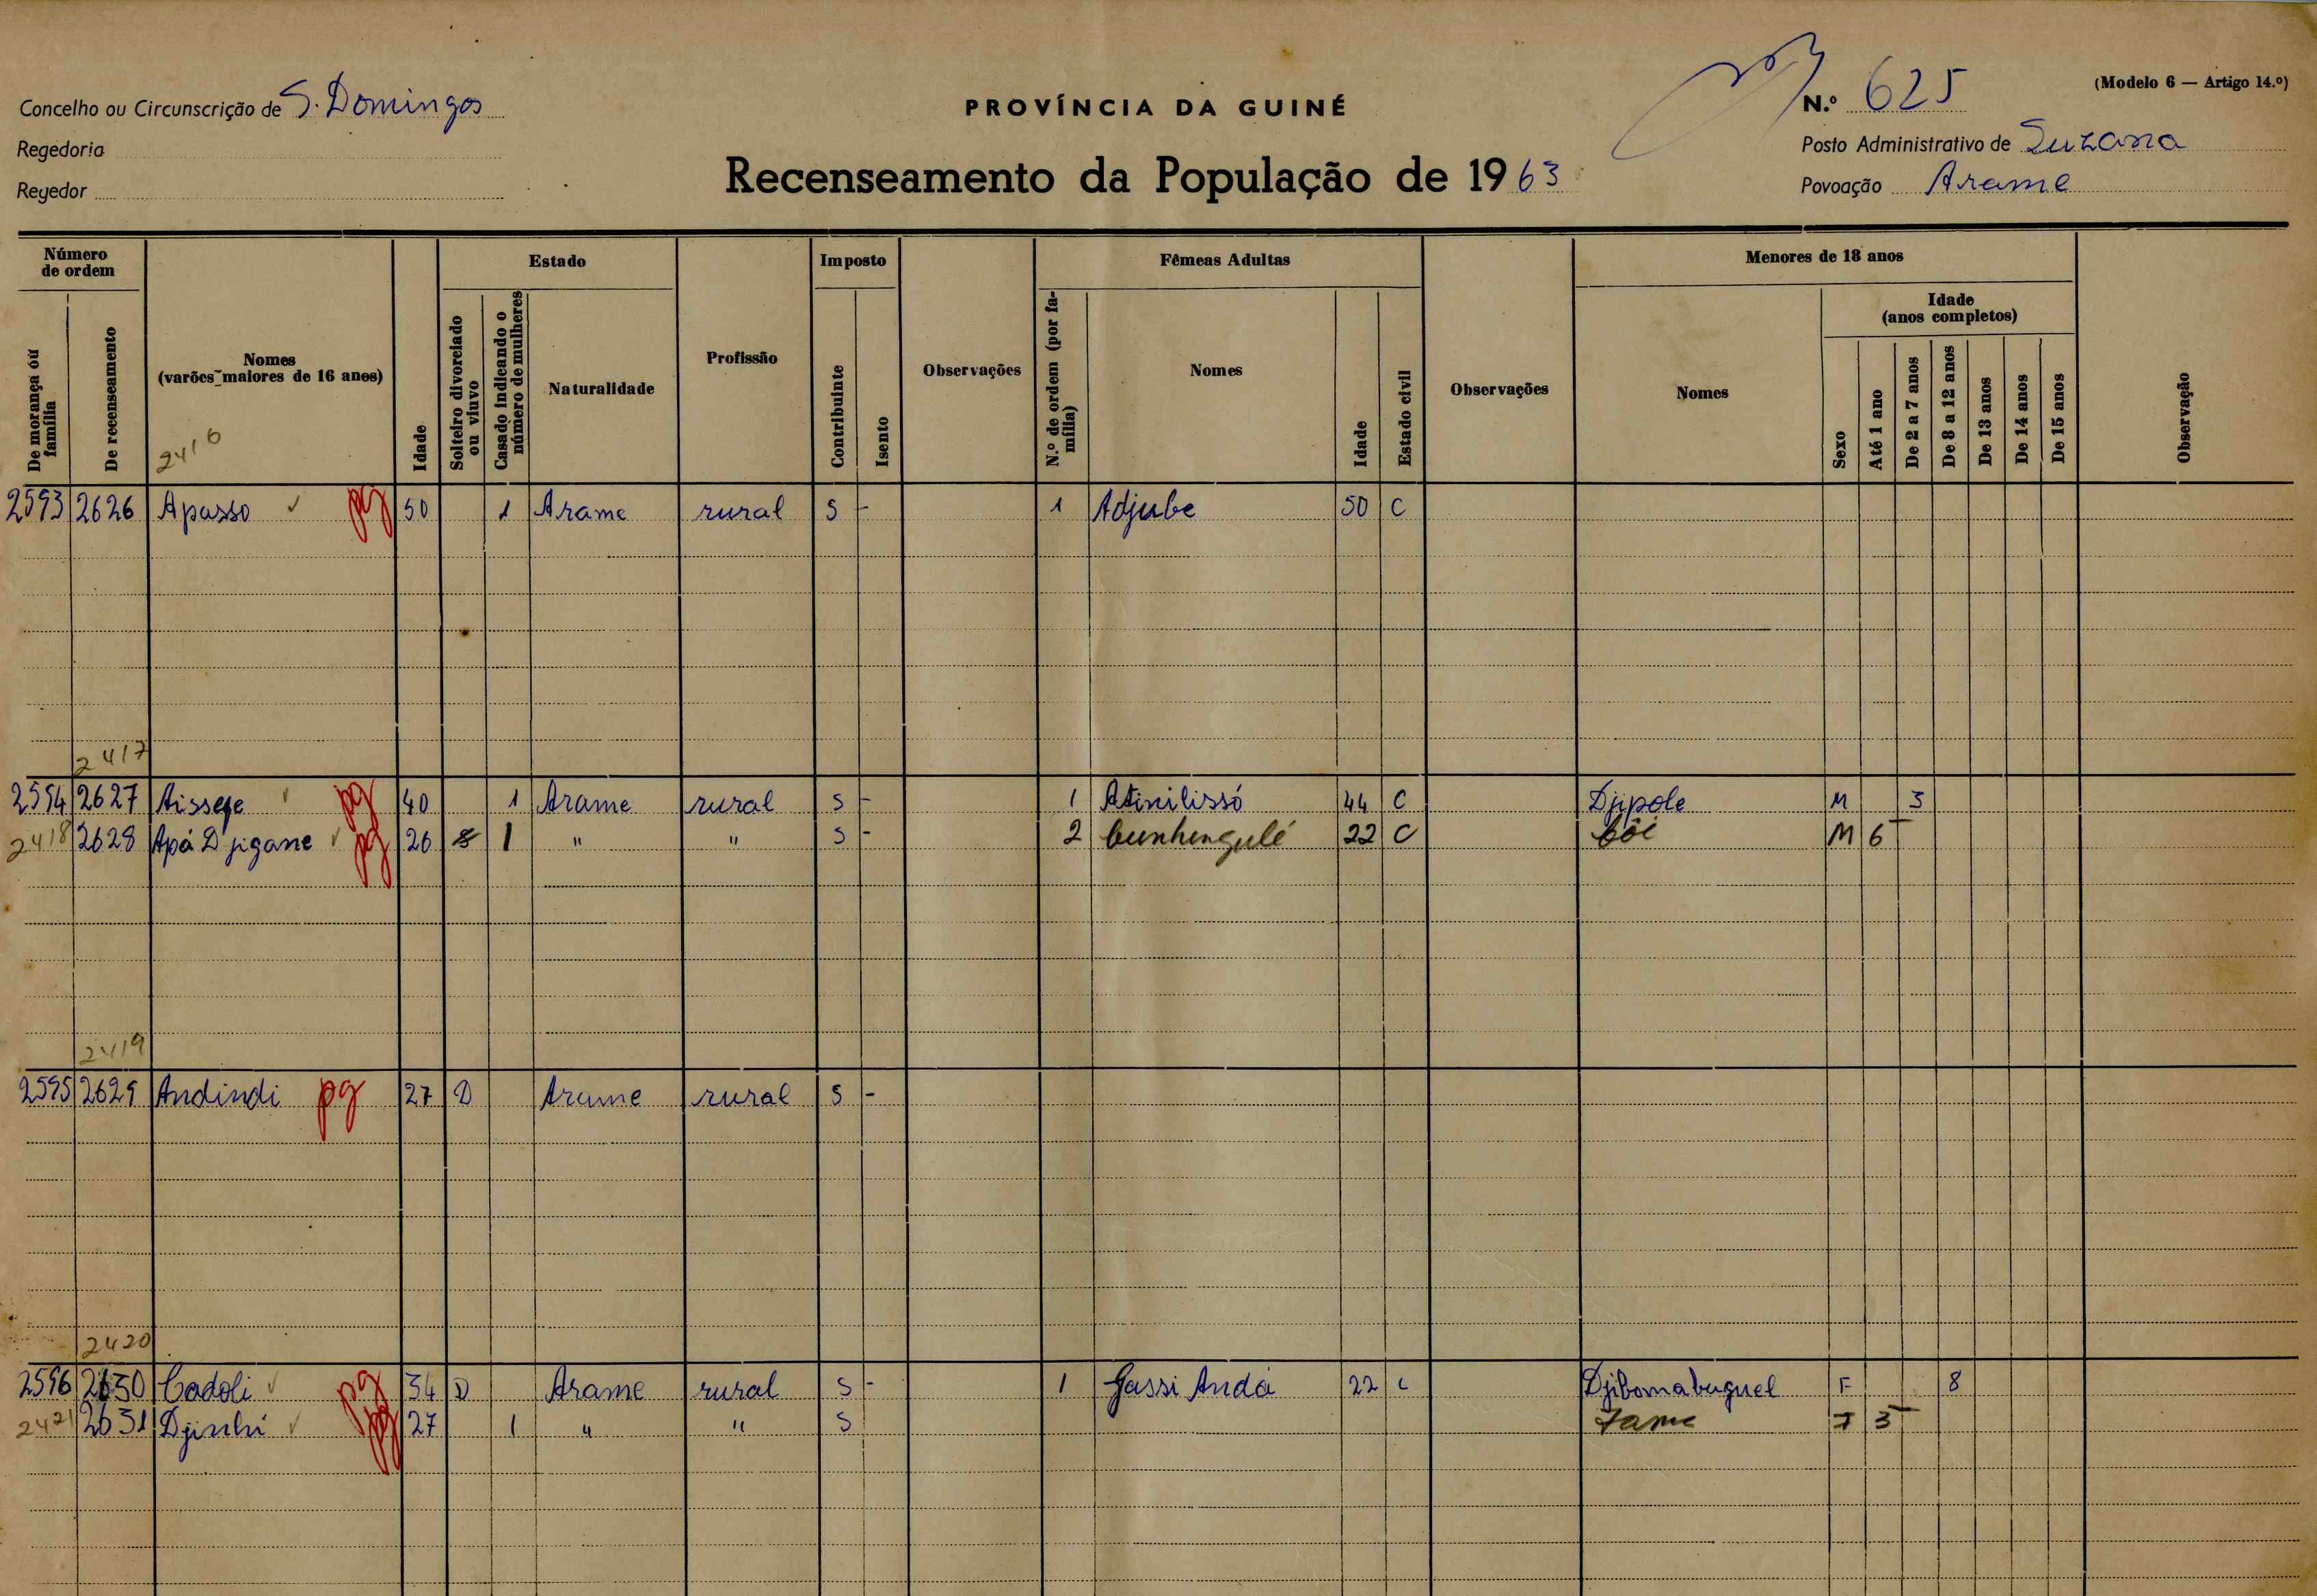 Concelho ou Circunscrição de S. Domingos
Regedoria
Regedor
PROVÍNCIA DA GUINÉ
Recenseamento da População de 1963
(Modelo 6 — Artigo 14.º)
N.º 625
Posto Administrativo de Suzana
Povoação Arame
Número de ordem
De morança ou família
De recenseamento
Nomes (varões maiores de 16 anos)
2416
Idade
Estado
Solteiro divorciado ou viuvo
Casado indicando o número de mulheres
Naturalidade
Profissão
Imposto
Contribuinte
Isento
Observações
Fêmeas Adultas
N.º de ordem (por família)
Nomes
Idade
Estado civil
Observações
Menores de 18 anos
Nomes
Sexo
Idade (anos completos)
Até 1 ano
De 2 a 7 anos
De 8 a 12 anos
De 13 anos
De 14 anos
De 15 anos
Observação
2593 2626 Apasso pg 50 1 Arame rural S - 1 Adjube 50 C
2417
2594 2627 Aissefe pg 40 1 Arame rural S - 1 Atinilissó 44 C Djipole M 3
2418 2628 Apá Djigane pg 26 S 1 " " S - 2 Cunhengulé 22 C Côi M 6
2419
2595 2629 Andindi pg 27 D Arame rural S -
2420
2596 2630 Cadoli pg 34 D Arame rural S - 1 Gassi Anda 22 C Djibomabuguel F 8
2421 2631 Djinhi pg 27 1 " " S Fame F 3